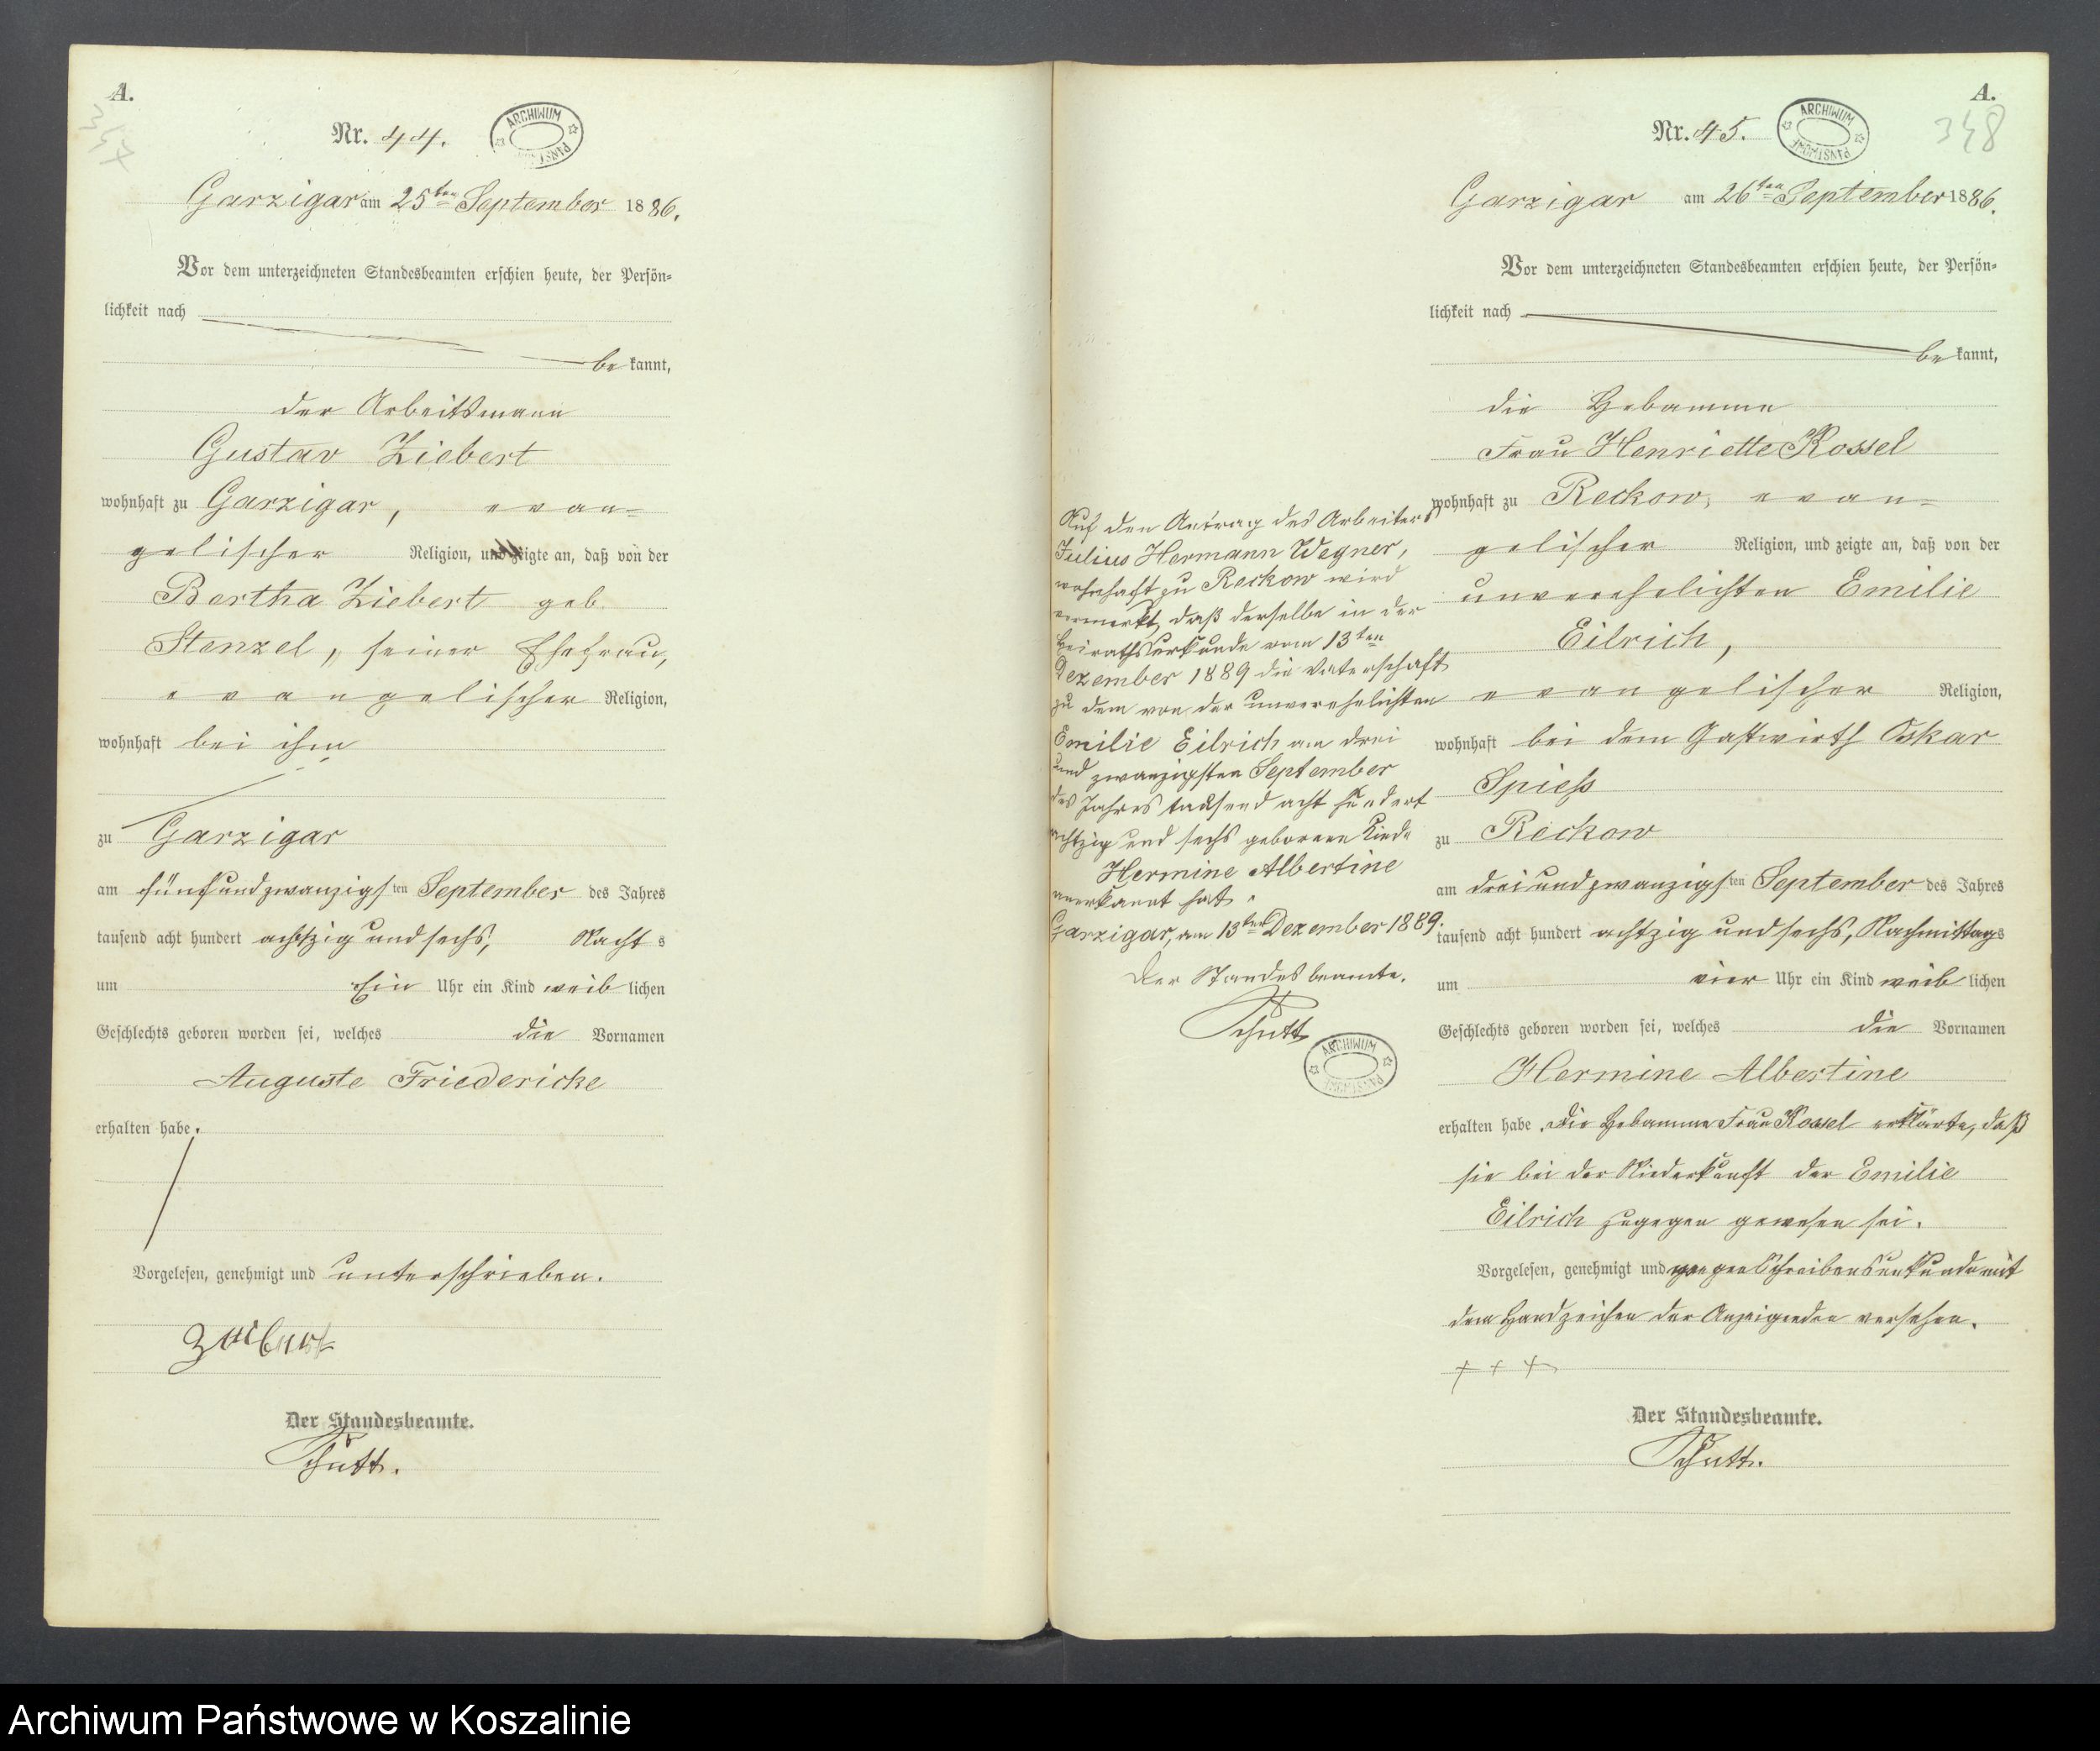 A.
347
Nr. 44.
ARCHIWUM
Garzigar am 25ten September 1886.
Vor dem unterzeichneten Standesbeamten erschien heute, der Persön-
lichkeit nach
be kannt,
der Arbeitsmann
Gustav Ziebert
wohnhaft zu Garzigar, evan-
gelischer Religion, und zeigte an, daß von der
Bertha Ziebert geb.
Stenzel, seiner Ehefrau,
evangelischer Religion,
wohnhaft bei ihm
zu Garzigar
am fünfundzwanzigsten September des Jahres
tausend acht hundert achtzig und sechs, Nachts
um Ein Uhr ein Kind weiblichen
Geschlechts geboren worden sei, welches die Vornamen
Auguste Friedericke
erhalten habe.
Vorgelesen, genehmigt und unterschrieben.
Ziebert
Der Standesbeamte.
Schutt.
A.
348
Nr. 45.
ARCHIWUM
Garzigar am 26ten September 1886.
Vor dem unterzeichneten Standesbeamten erschien heute, der Persön-
lichkeit nach
be kannt,
die Hebamme
Frau Henriette Kossel
wohnhaft zu Reckow, evan-
gelischer Religion, und zeigte an, daß von der
unverehelichten Emilie
Eilrich,
evangelischer Religion,
wohnhaft bei dem Gastwirth Oskar
Spieß
zu Reckow
am dreiundzwanzigsten September des Jahres
tausend acht hundert achtzig und sechs, Nachmittags
um vier Uhr ein Kind weiblichen
Geschlechts geboren worden sei, welches die Vornamen
Hermine Albertine
erhalten habe. Die Hebamme Frau Kossel erklärte, daß
sie bei der Niederkunft der Emilie
Eilrich zugegen gewesen sei.
Vorgelesen, genehmigt und wegen Schreibensunkunde mit
dem Handzeichen der Anzeigenden versehen.
+ + +
Der Standesbeamte.
Schutt.
Auf den Antrag des Arbeiters
Julius Hermann Wegner,
wohnhaft zu Reckow wird
vermerkt, daß derselbe in der
Heirathsurkunde vom 13ten
Dezember 1889 die Vaterschaft
zu dem von der unverehelichten
Emilie Eilrich am drei
und zwanzigsten September
des Jahres tausend acht hundert
achtzig und sechs geborenen Kinde
Hermine Albertine
anerkannt hat.
Garzigar, am 13ten Dezember 1889.
Der Standesbeamte.
Schutt
ARCHIWUM
Archiwum Państwowe w Koszalinie